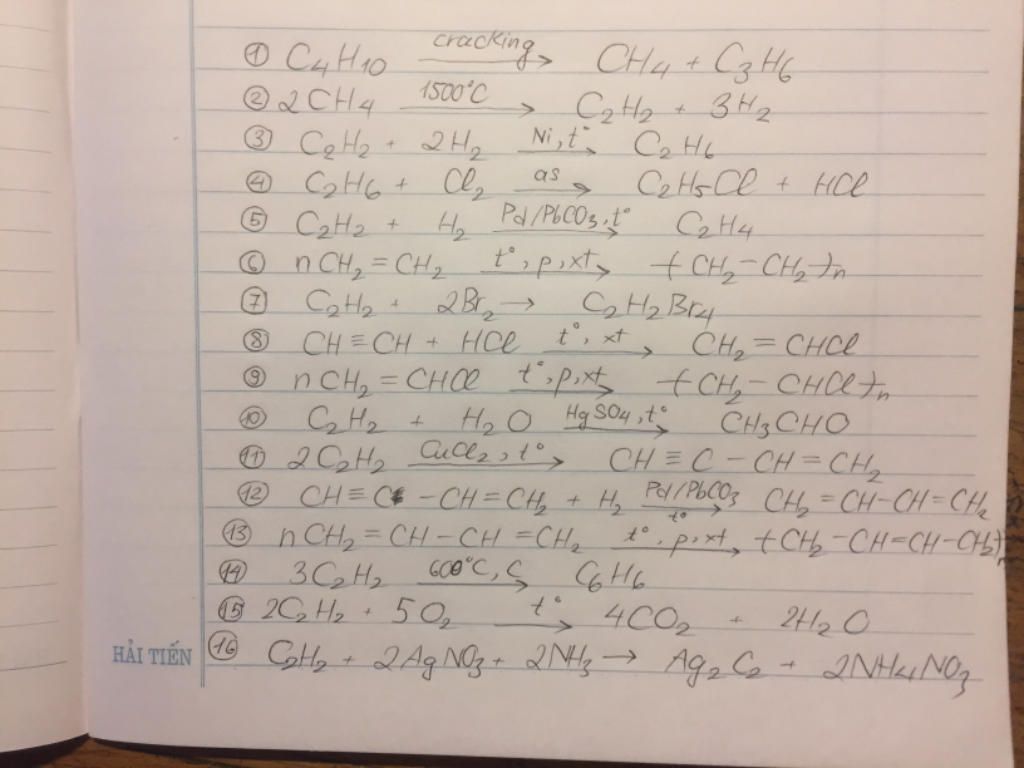 ① C₄H₁₀ cracking→ CH₄ + C₃H₆
② 2CH₄ 1500°C→ C₂H₂ + 3H₂
③ C₂H₂ + 2H₂ Ni, t°→ C₂H₆
④ C₂H₆ + Cl₂ as→ C₂H₅Cl + HCl
⑤ C₂H₂ + H₂ Pd/PbCO₃, t°→ C₂H₄
⑥ nCH₂ = CH₂ t°, p, xt→ (CH₂ – CH₂)ₙ
⑦ C₂H₂ + 2Br₂ → C₂H₂Br₄
⑧ CH ≡ CH + HCl t°, xt→ CH₂ = CHCl
⑨ nCH₂ = CHCl t°, p, xt→ (CH₂ – CHCl)ₙ
⑩ C₂H₂ + H₂O HgSO₄, t°→ CH₃CHO
⑪ 2C₂H₂ CuCl₂, t°→ CH ≡ C – CH = CH₂
⑫ CH ≡ C – CH = CH₂ + H₂ Pd/PbCO₃ t°→ CH₂ = CH – CH = CH₂
⑬ nCH₂ = CH – CH = CH₂ t°, p, xt→ (CH₂ – CH = CH – CH₂)ₙ
⑭ 3C₂H₂ 600°C, C→ C₆H₆
⑮ 2C₂H₂ + 5O₂ t°→ 4CO₂ + 2H₂O
HẢI TIẾN ⑯ C₂H₂ + 2AgNO₃ + 2NH₃ → Ag₂C₂ + 2NH₄NO₃